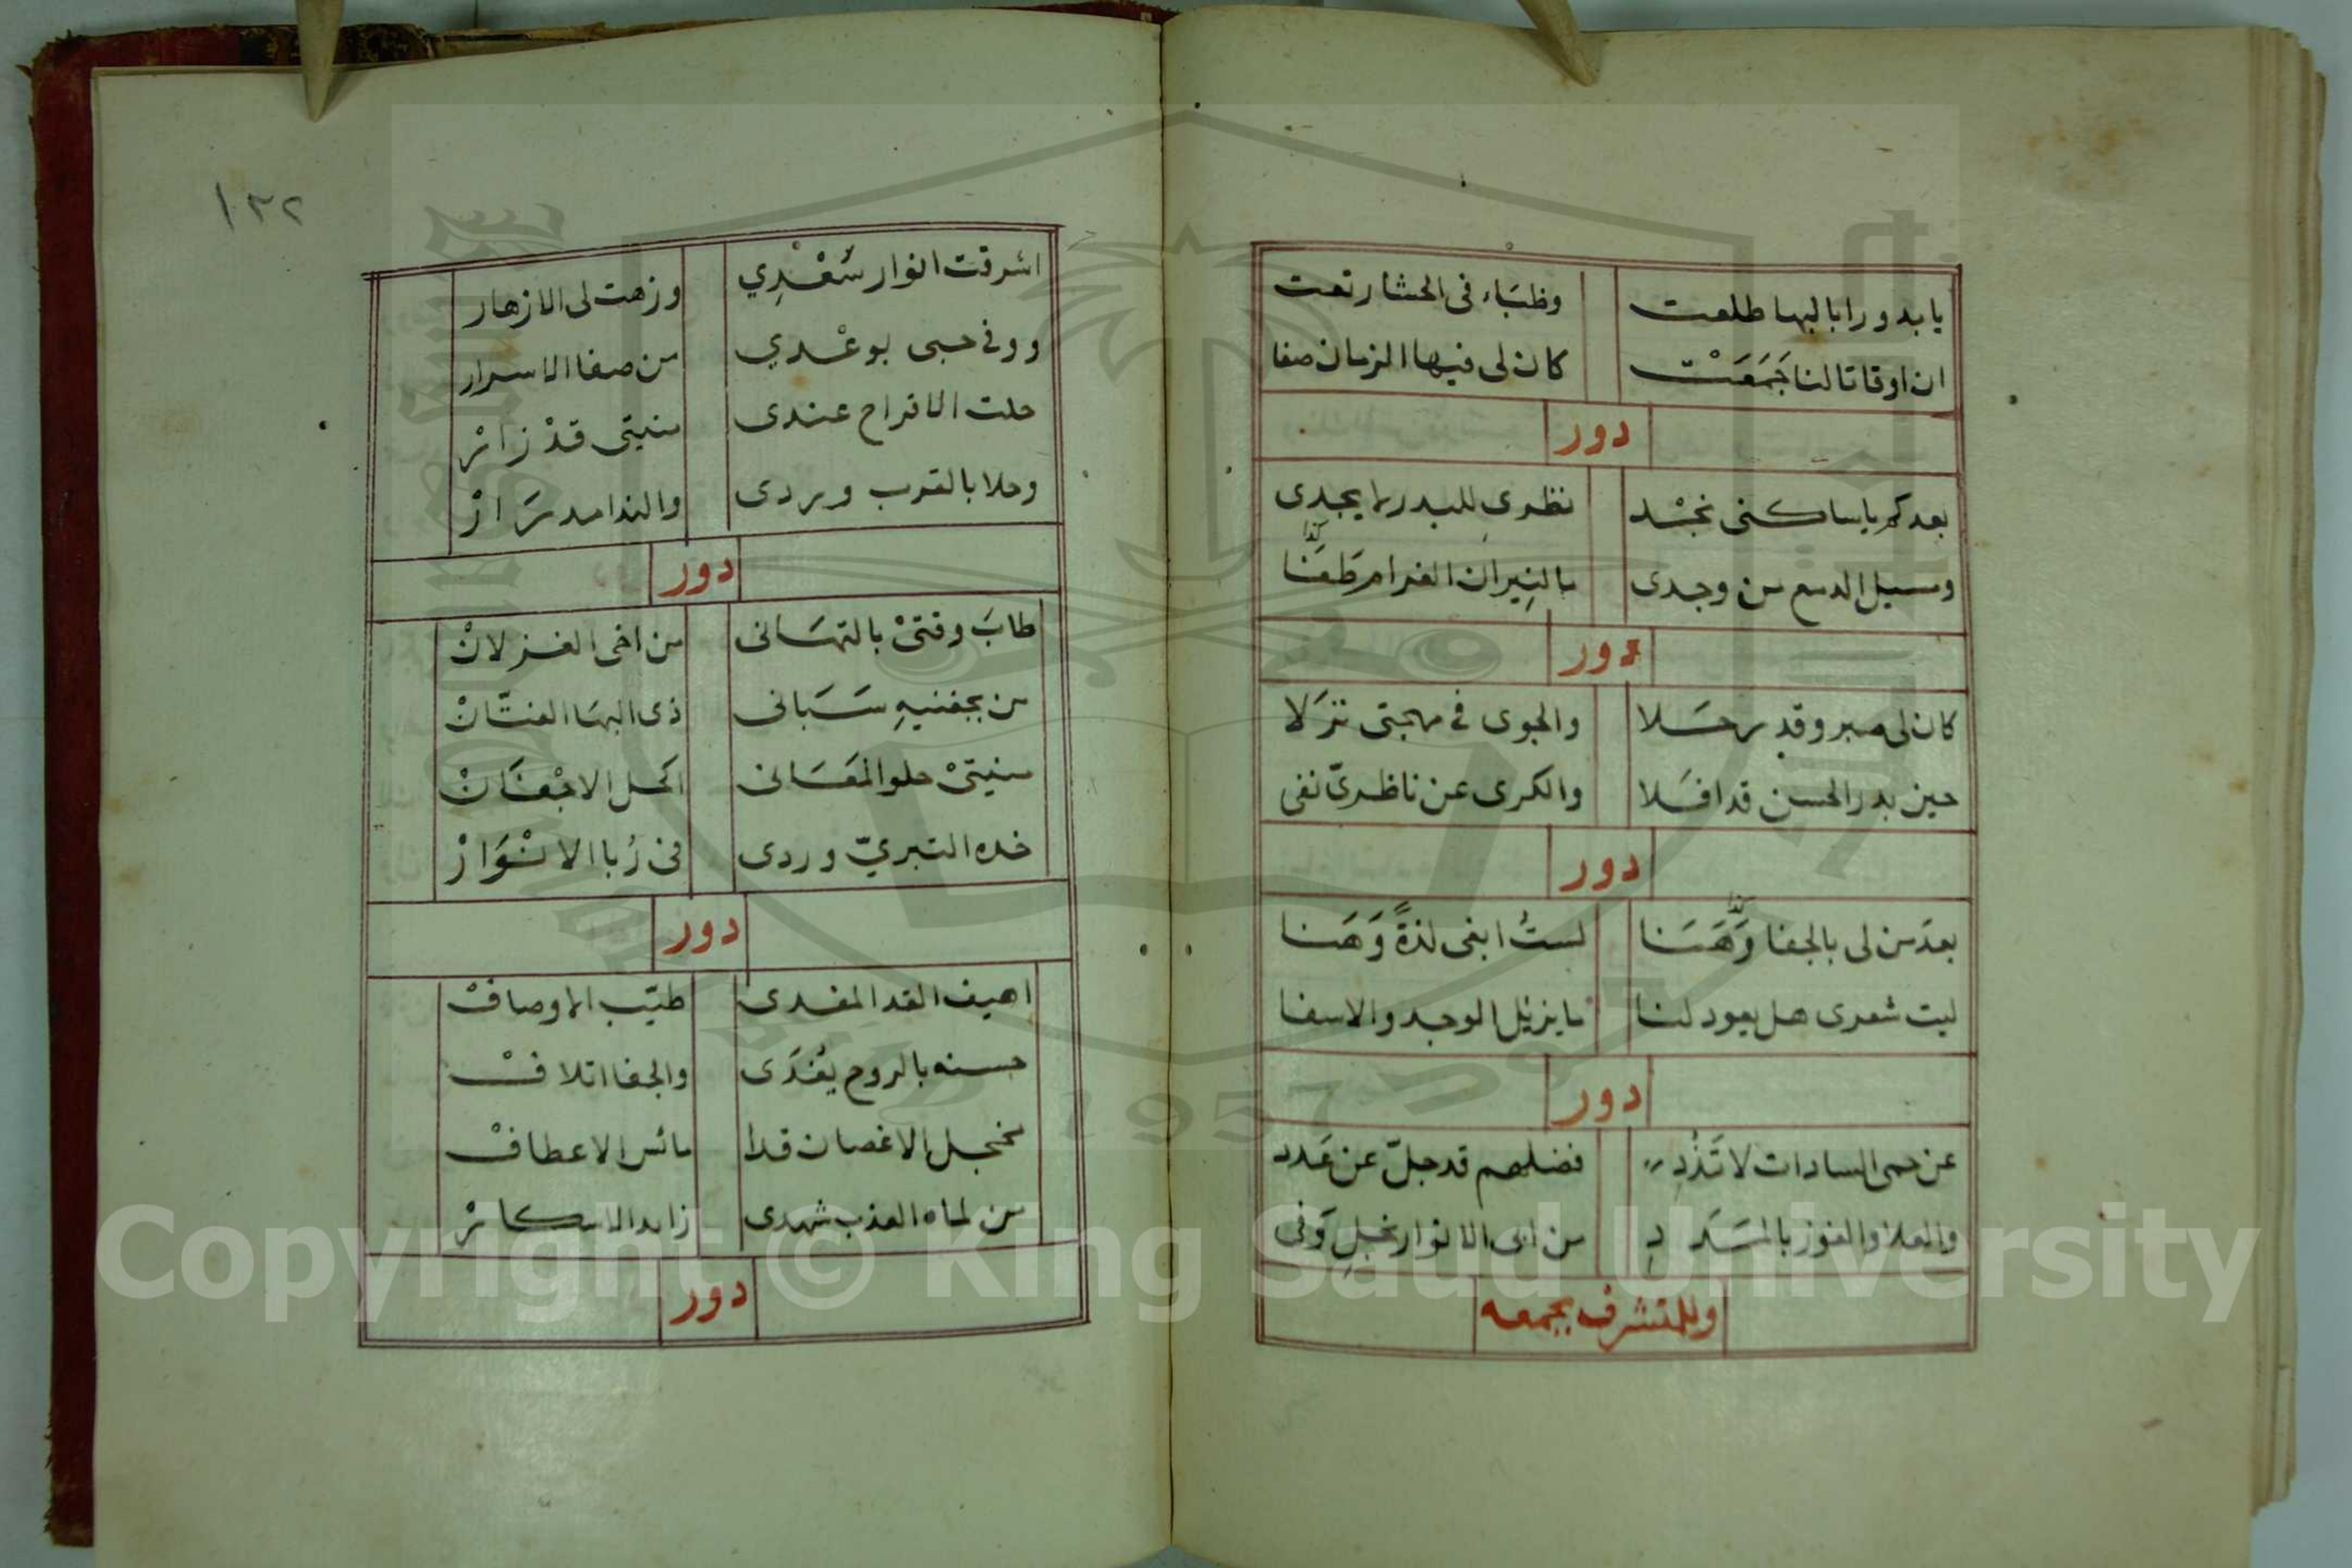 يا بدورا بالبها طلعت وظبَاء فى الحشا رتعت
ان اوقاتا لنا جَمَعَتْ كان لى فيها الزمان صفا
دور
بعدكم يا ساكنى نجْد نظرى للبدر لا يجدى
ومسيل الدمع من وجدى ما لنِيران الغرام طَفَا
دور
كان لى صبر وقد رحَلا والجوى فى مهجتى نزَلا
حين بدر الحسن قد افَلا والكرى عن ناظرىّ نفى
دور
بعدَ من لى بالجفا وَهَنَا لستُ ابغى لذةً وَهَنا
ليت شعرى هل يعود لنا ما يزيل الوجد والاسفا
دور
عن حمى السادات لا تَذُدِ فضلهم قد جلّ عن عَدد
والعلا والفوز بالمَدَدِ من ابى الانوار نجلِ وَفى
وللمتشرف بجمعه
١٣٢
اشرقت انوار سُعْدِي وزهت لى الازهار
ووفى حبى بوعْدي من صفا الاسرار
حلت الافراح عندى منيتى قدْ زائرْ
وحلا بالقرب وردى والندا مدرَارْ
دور
طابَ وقتىْ بالتهَانى من اخى الغزلانْ
من بجفنيهِ سَبَانى ذى البهَا الفتّانْ
منيتىْ حلو المعَانى اكحل الاجْفَانْ
خده التبريّ وردى فى رُبا الانْوَارْ
دور
اهيف القد المفدى طيّب الاوصافْ
حسنه بالروح يُفدَى والجفا اتلافْ
مخجل الاغصان قدا مائس الاعطافْ
من لماه العذب شهدى زايد الاسكارْ
دور
Copyright © King Saud University
1957